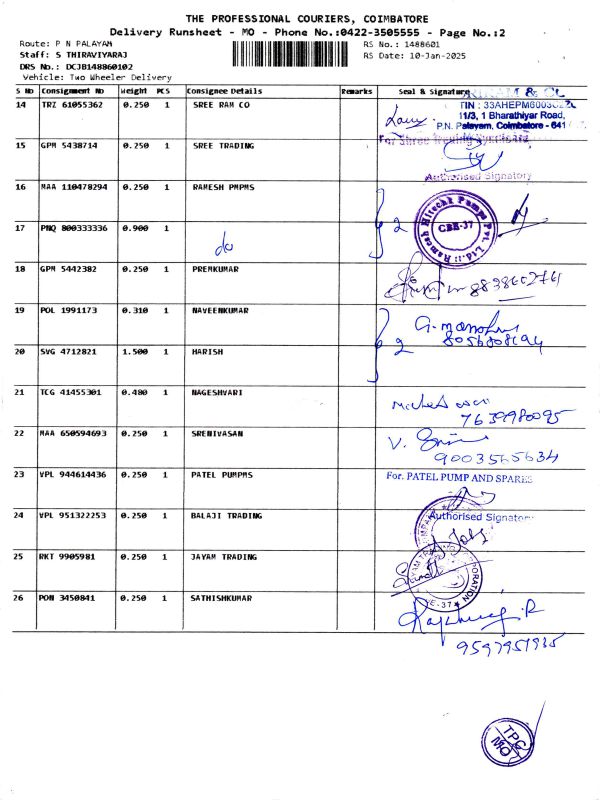 THE PROFESSIONAL COURIERS, COIMBATORE
Delivery Runsheet - MO - Phone No.:0422-3505555 - Page No.:2
Route: P N PALAYAM RS No.: 1488601
Staff: S THIRAVIYARAJ RS Date: 10-Jan-2025
DRS No.: DCJB148860102
Vehicle: Two Wheeler Delivery
S No Consignment No Weight PCS Consignee Details Remarks Seal & Signature
14 TRZ 61055362 0.250 1 SREE RAM CO
& CO
TIN : 33AHEPM6003C2ZL
11/3, 1 Bharathiyar Road,
P.N. Palayam, Coimbatore - 641
For Shree Trading Syndicate
15 GPM 5438714 0.250 1 SREE TRADING
Authorised Signatory
16 MAA 110478294 0.250 1 RAMESH PMPMS
2
Ramesh Hitech Pumps Pvt. Ltd.
CBE-37
17 PNQ 800333336 0.900 1
do
18 GPM 5442382 0.250 1 PREMKUMAR
19 POL 1991173 0.310 1 NAVEENKUMAR
2
20 SVG 4712821 1.500 1 HARISH
21 TCG 41455301 0.480 1 NAGESHVARI
7639980095
22 MAA 650594693 0.250 1 SRENIVASAN
9003565634
23 VPL 944614436 0.250 1 PATEL PUMPMS
For. PATEL PUMP AND SPARES
24 VPL 951322253 0.250 1 BALAJI TRADING
Authorised Signatory
25 RKT 9905981 0.250 1 JAYAM TRADING
JAYAM TRADING CORPORATION
26 PON 3450841 0.250 1 SATHISHKUMAR
9597951935
TPC
MO